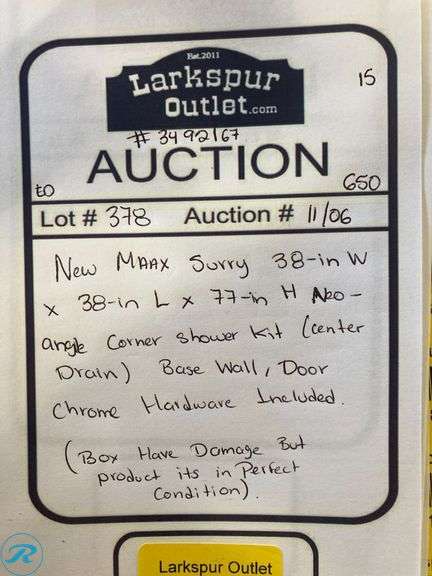 Est. 2011
Larkspur
Outlet.com
15
# 3492167
AUCTION
to
650
Lot # 378 Auction # 11/06
New MAAX Surry 38-in W
x 38-in L x 77-in H Neo-
angle Corner Shower Kit (center
Drain) Base Wall, Door
Chrome Hardware Included.
(Box Have Damage But
product its in Perfect
Condition).
Larkspur Outlet
R